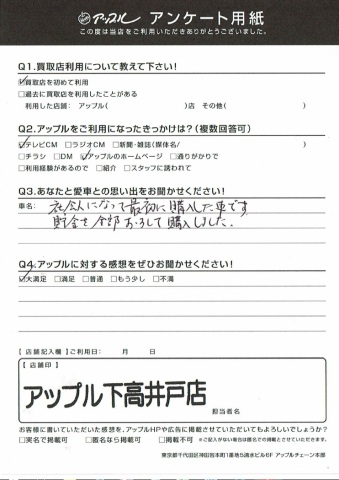 アップル アンケート用紙
この度は当店をご利用いただきありがとうございました。
Q1.買取店利用について教えて下さい!
☑買取店を初めて利用
□過去に買取店を利用したことがある
利用した店舗: アップル( )店 その他( )
Q2.アップルをご利用になったきっかけは?(複数回答可)
☑テレビCM □ラジオCM □新聞・雑誌(媒体名/ )
□チラシ □DM ☑アップルのホームページ □通りがかりで
□利用経験があるので □紹介 □スタッフに誘われて
Q3.あなたと愛車との思い出をお聞かせください!
車名: 社会人になって最初に購入した車です
貯金を全部おろして購入しました.
Q4.アップルに対する感想をぜひお聞かせください!
☑大満足 □満足 □普通 □もう少し □不満
【店舗記入欄】ご利用日: 月 日
【店舗印】
アップル下高井戸店
担当者名
お客様に書いていただいた感想を、アップルHPや広告に掲載させていただいてもよろしいでしょうか?
□実名で掲載可 □匿名なら掲載可 □掲載不可 ※ご記入がない場合は匿名での掲載とさせていただきます。
東京都千代田区神田岩本町1番地5清水ビル6F アップルチェーン本部